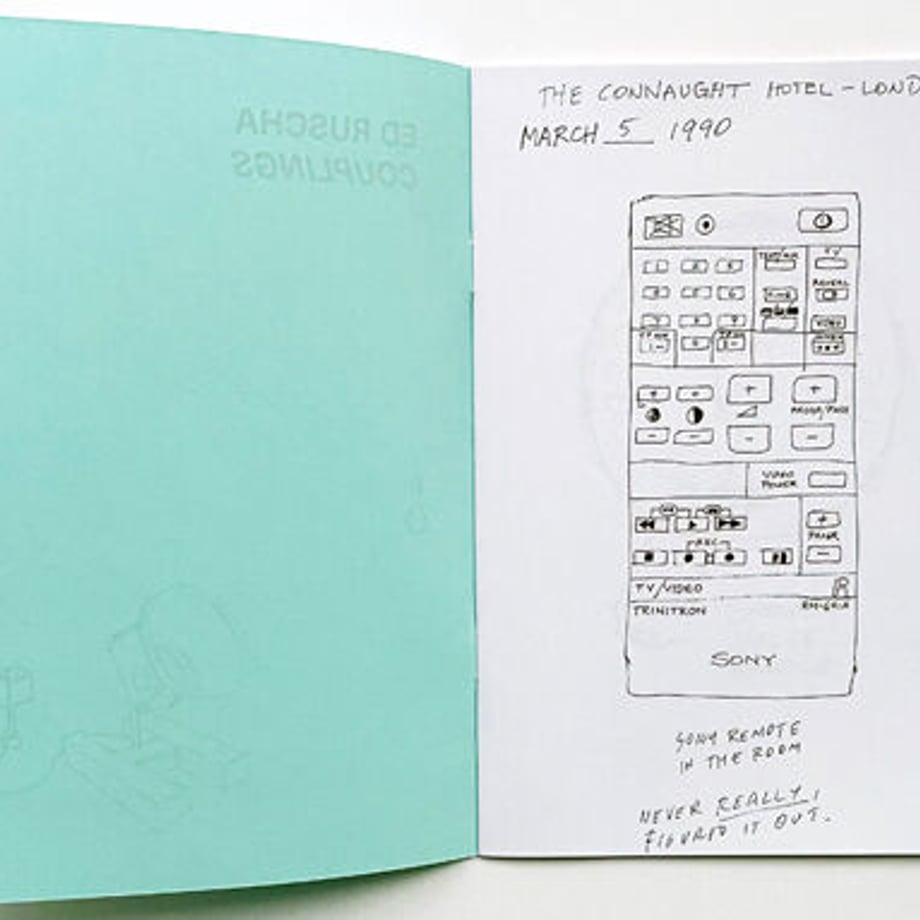 ED RUSCHA
COUPLINGS
THE CONNAUGHT HOTEL – LOND
MARCH 5 1990
1 2 3
4 5 6
7 8 9
0
TV
REVEAL
VIDEO
PROGR/PAGE
VIDEO
POWER
REC
TV/VIDEO
TRINITRON
SONY
SONY REMOTE
IN THE ROOM
NEVER REALLY
FIGURED IT OUT.